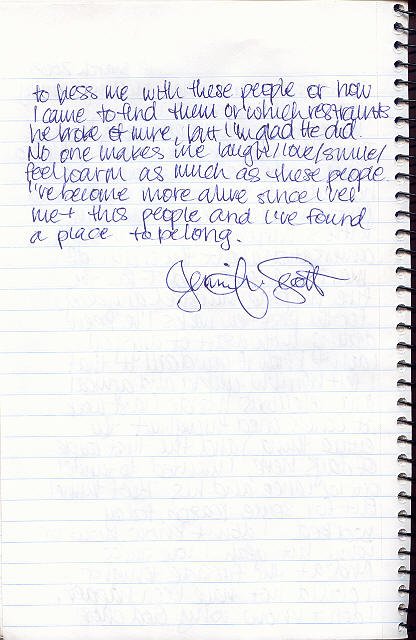 to bless me with these people or how
I came to find them or which restraints
he broke of mine, but I'm glad He did.
No one makes me laugh/love/smile/
feel warm as much as these people.
I've become more alive since I've
met this people and I've found
a place to belong.
Jennifer Scott